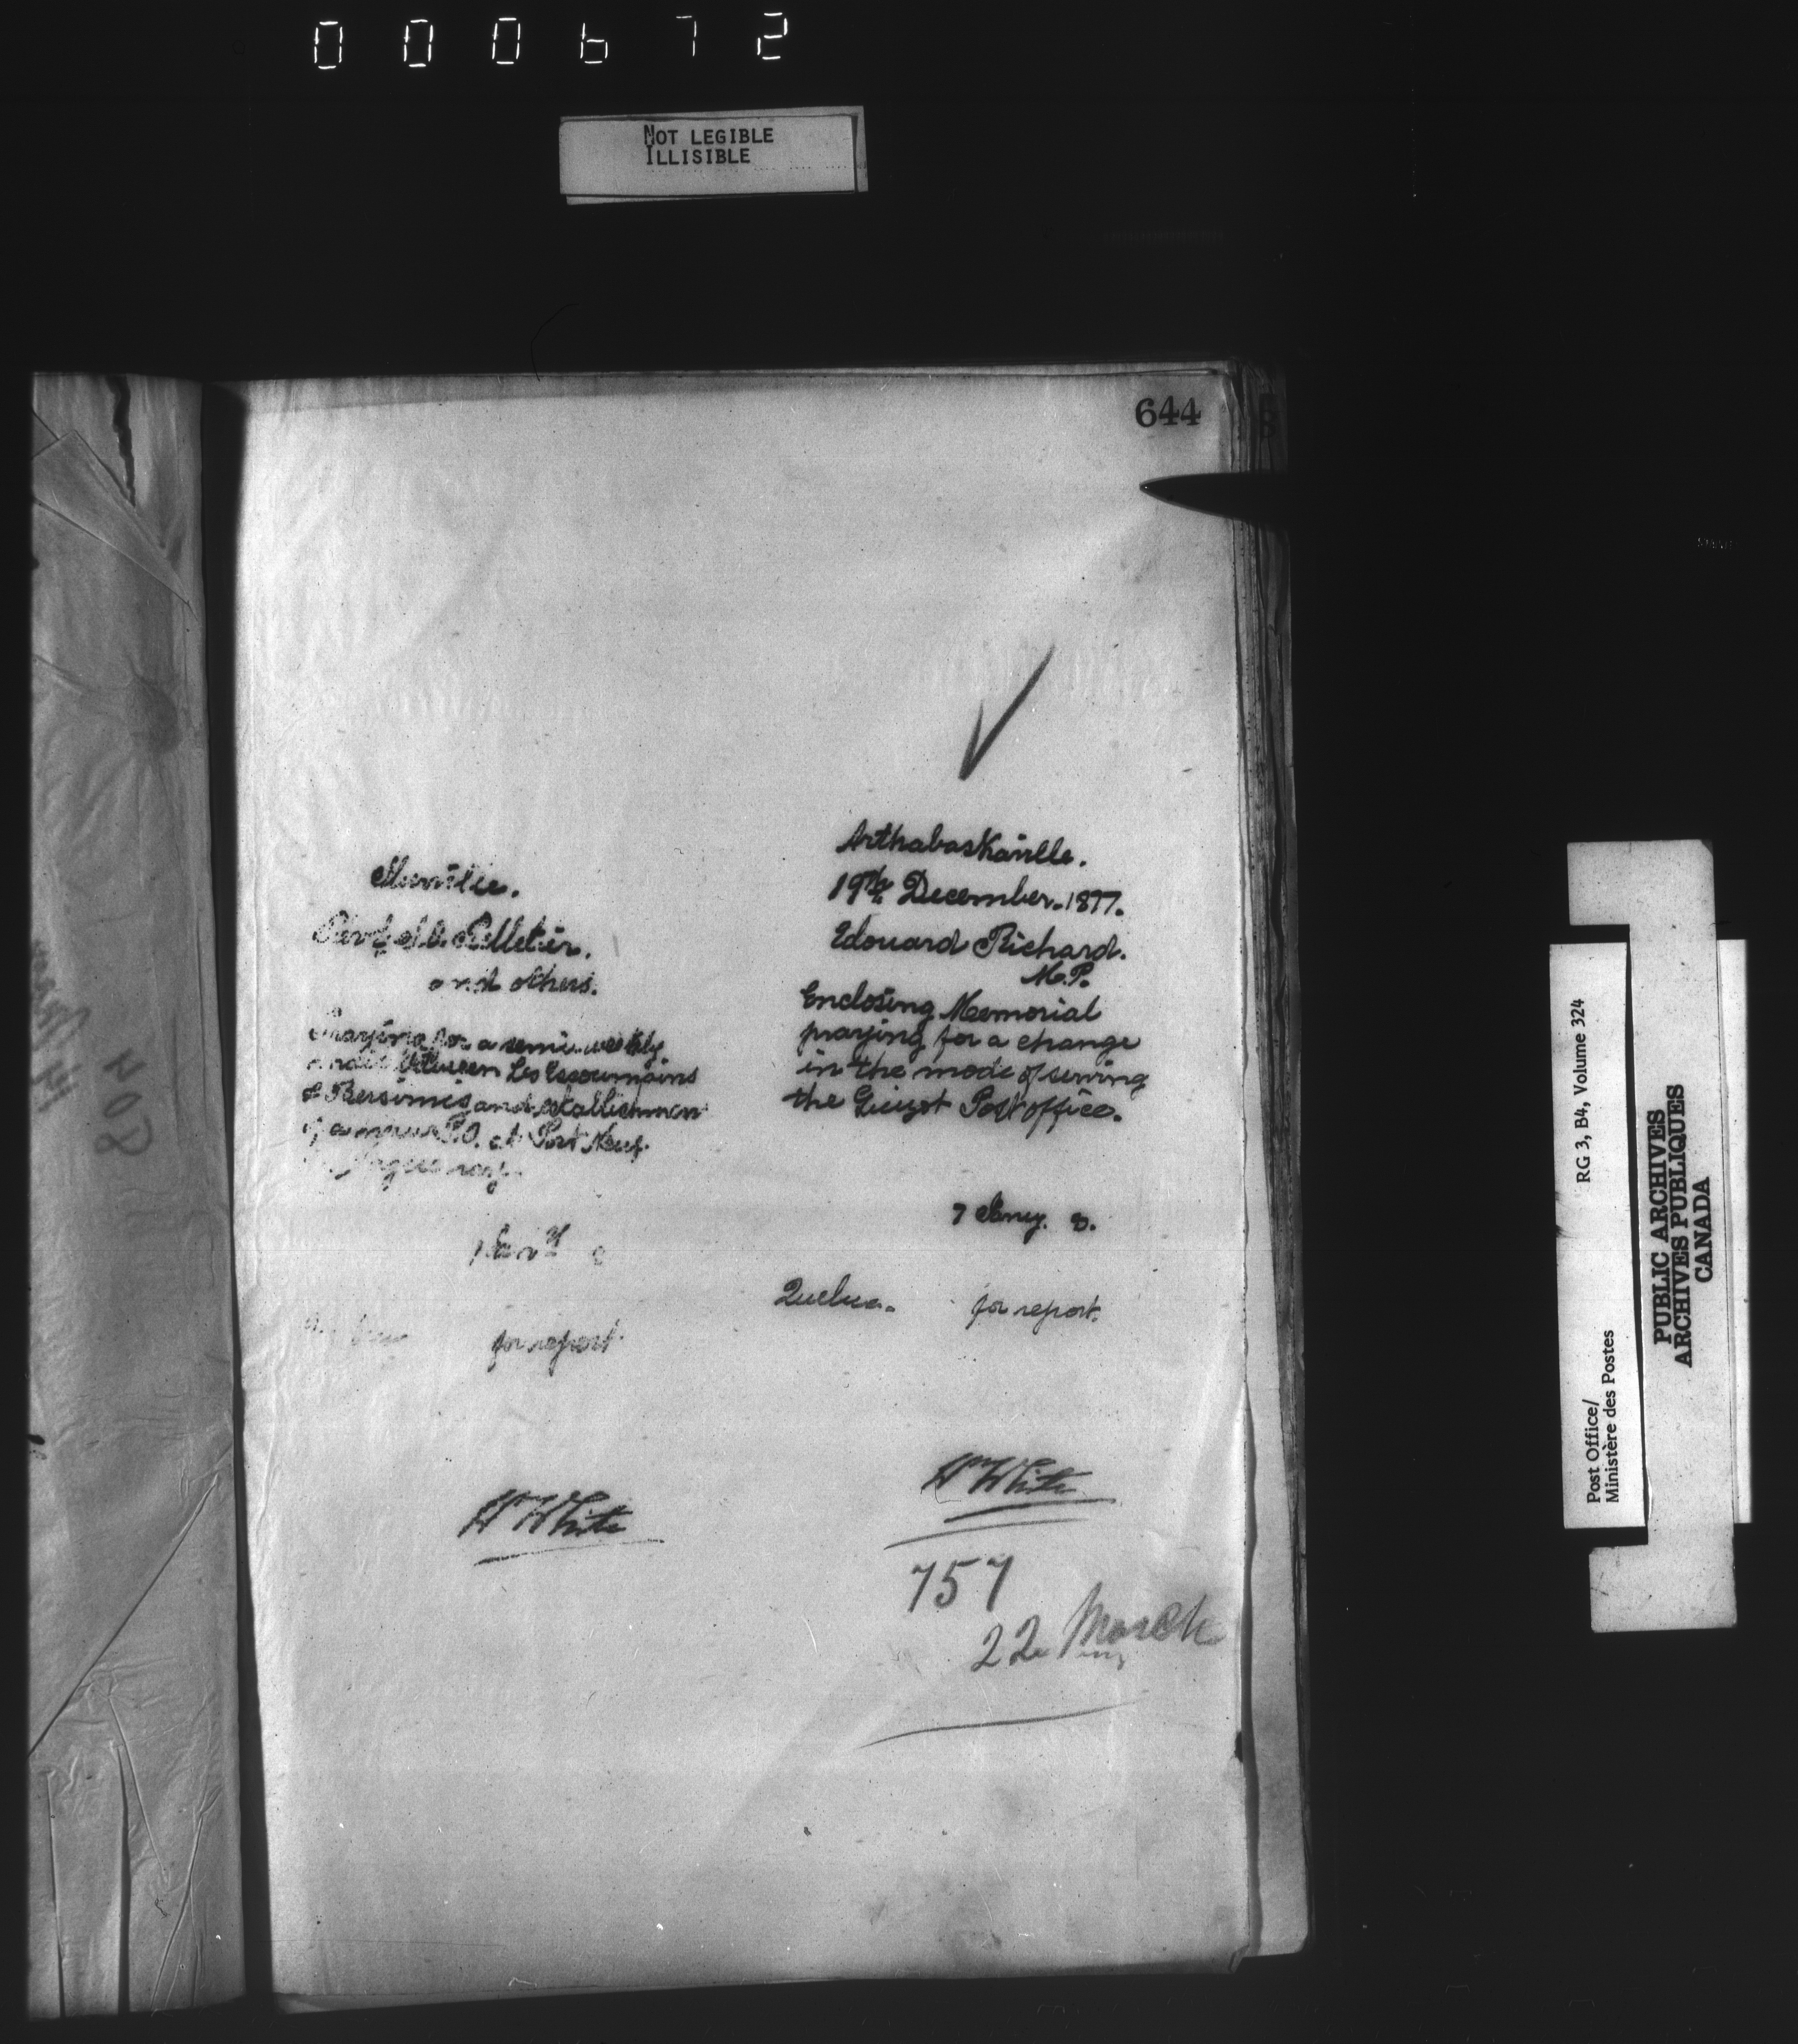 000672
NOT LEGIBLE
ILLISIBLE
644
and others.
Praying for a semi-weekly
between Les Escoumains
& Bersimis and establishmen
of a P.O. at Port Neuf
Saguenay.
for report
W White
Arthabaskaville.
19th December. 1877.
Edouard Richard.
M.P.
Enclosing Memorial
praying for a change
in the mode of serving
the Post office.
7 Jany. 8.
Quebec. for report.
W White
757
22 March
408
Post Office/ RG 3, B4, Volume 324
Ministère des Postes
PUBLIC ARCHIVES
ARCHIVES PUBLIQUES
CANADA